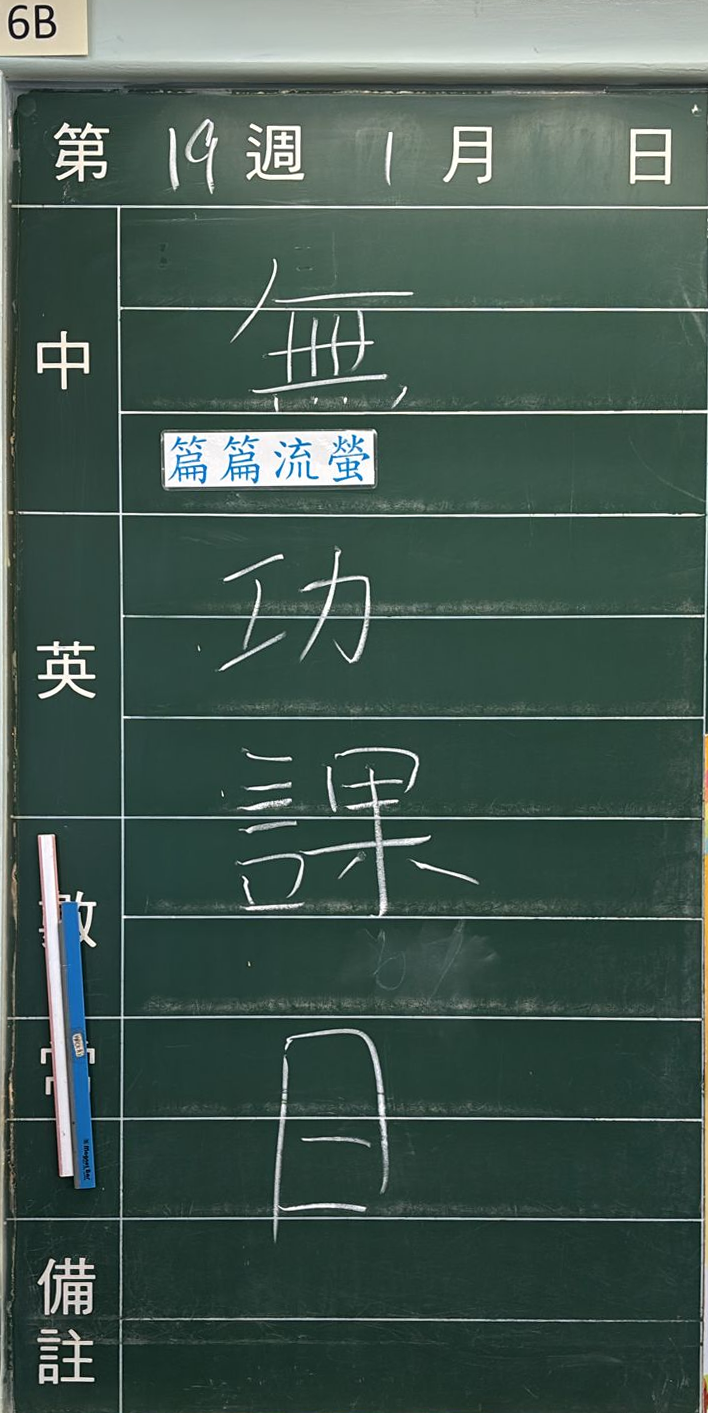 6B
第 19 週 1 月 日
中
無
篇篇流螢
英
功
課
數
常
日
備註